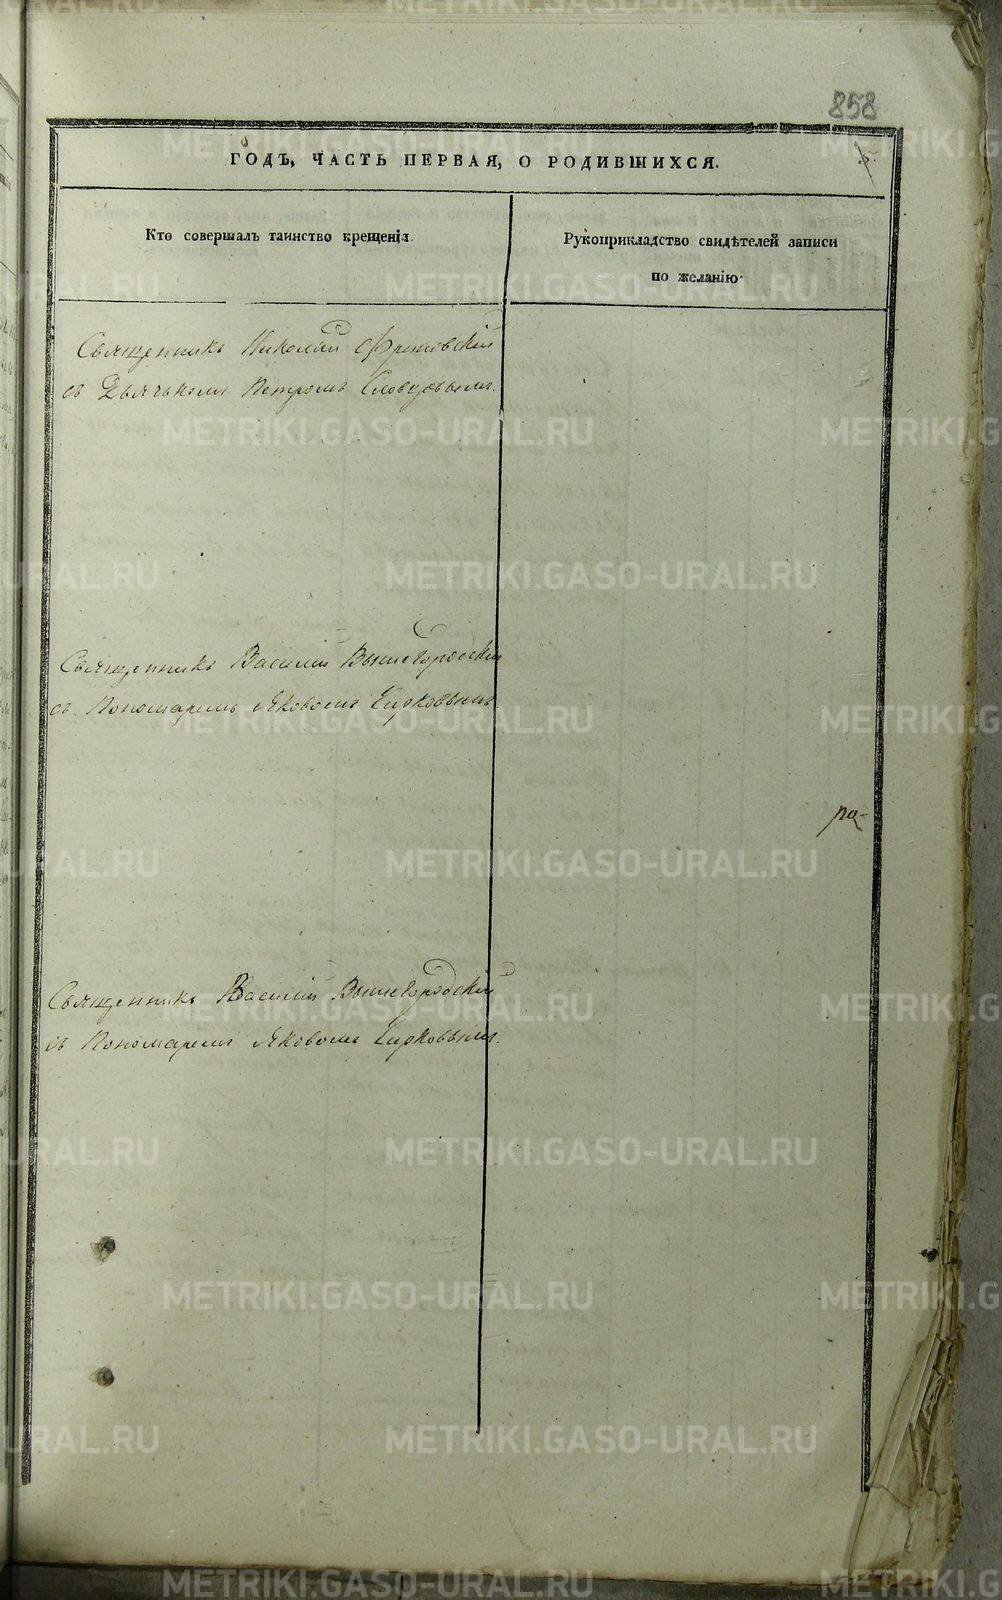 858
ГОДЪ, ЧАСТЬ ПЕРВАЯ, О РОДИВШИХСЯ.
5.
Кто совершалъ таинство крещенія.
Рукоприкладство свидѣтелей записи
по желанію.
Священникъ Николай
съ Дьячькомъ Петромъ Словцовымъ.
Священникъ Василій Вышегородскій
съ Пономаремъ Яковомъ Чирковымъ.
ра-
Священникъ Василій Вышегородскій
съ Пономаремъ Яковомъ Чирковымъ.
METRIKI.GASO-URAL.RU